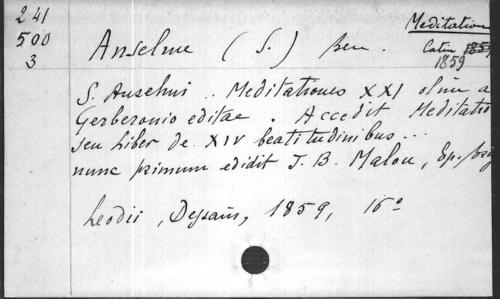 241
500
3
Meditation
Latin 1859
1859
Anselme (S.)
S. Anselmi .. Meditationes XXI olim a
Gerberonio editae. Accedit Meditatio
seu Liber de XIV beatitudinibus...
nunc primum edidit J. B. Malou, Ep. brug
Leodii, Dessain, 1859, 16°